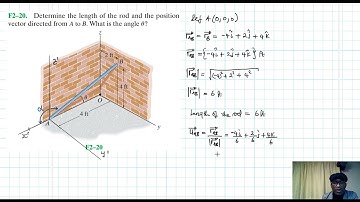 F2–20. Determine the length of the rod and the position
vector directed from A to B. What is the angle θ?
z
z'
2 ft
B
θ
O
4 ft
4 ft
A
x'
y
y'
F2–20
A(0,0,0)
r_AB = r_B = -4i + 2j + 4k
r_AB = {-4i + 2j + 4k} ft
|r_AB| = √(-4)² + 2² + 4²
|r_AB| = 6 ft
length of the rod = 6ft
u_AB = r_AB / |r_AB| = -4i/6 + 2/6 j + 4k/6
+